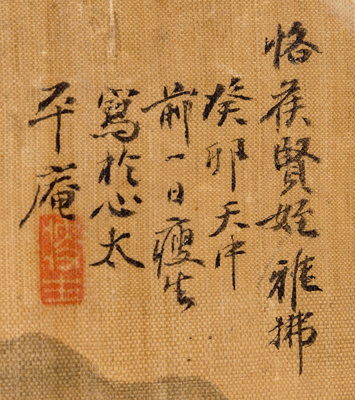 恪葆賢姪雅拂
癸卯天中
前一日瘦生
寫於心太
平庵